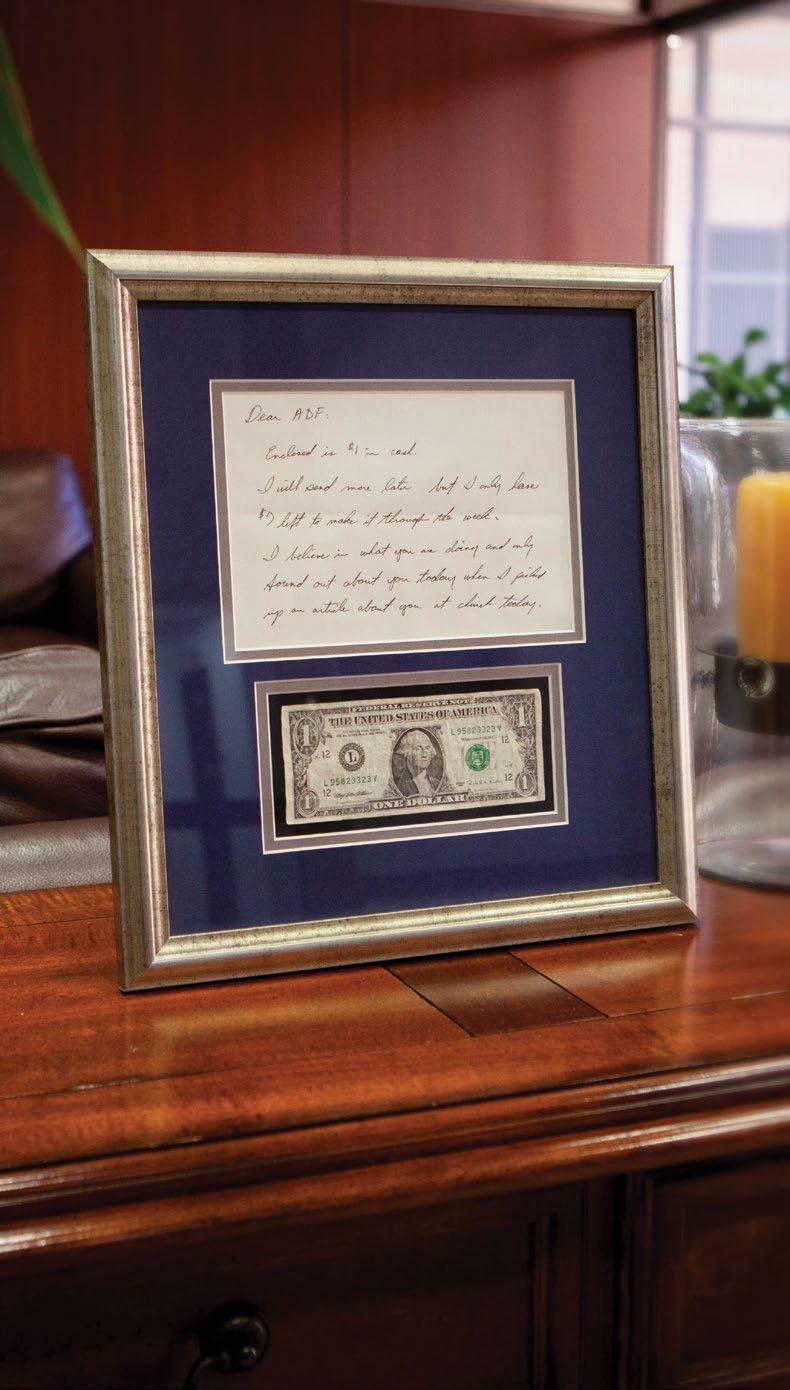 Dear ADF:
Enclosed is $1 in cash.
I will send more later but I only have
$7 left to make it through the week.
I believe in what you are doing and only
found out about you today when I picked
up an article about you at church today.
FEDERAL RESERVE NOTE
THE UNITED STATES OF AMERICA
1
1
L 95823323 V
12
L
12
L 95823323 V
12
12
1
ONE DOLLAR
1